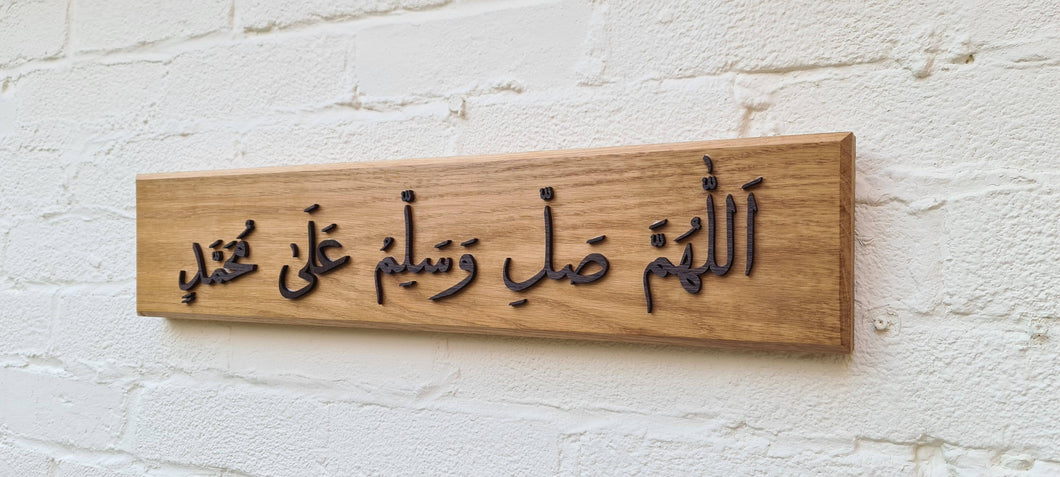 اَللّٰهُمَّ صَلِّ وَسَلِّمُ عَلَىٰ مُحَمَّدٍ